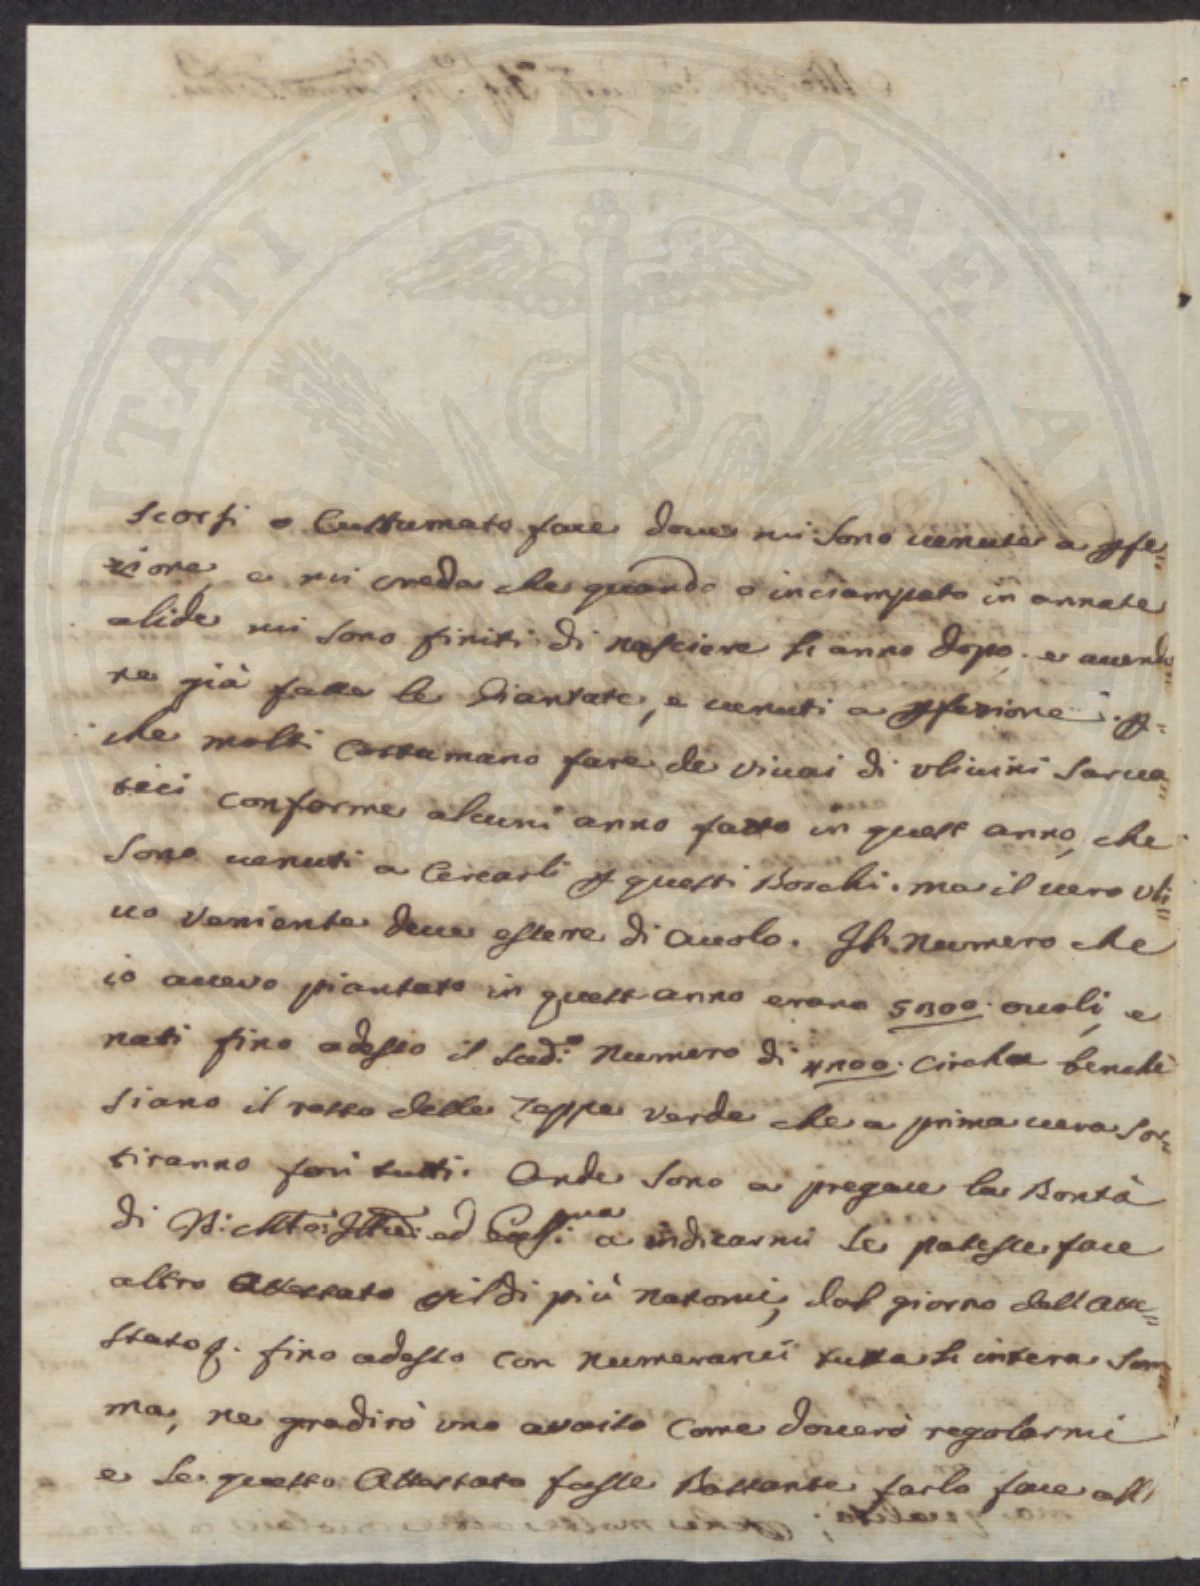 PUBLICAE
scorsi o Custumato fare dove mi sono venute a ꝑfe=
zione, e mi creda che quando o inciampato in annate
alide mi sono finiti di nasciere l'anno dopo. e avendo
ne già fatte le Piantate, e venuti a ꝑfezione. ꝑ=
che molti Costumano fare de vivai di ulivini Sarva=
tici conforme alcuni anno fatto in quest anno, che
sono venuti a Cercarli ꝑ questi Boschi. ma il vero uli=
vo Veniente deve essere di ovolo. Il Numero che
io avevo piantato in quest anno erano 5300. ovoli, e
nati fino adesso il sud.o Numero di 4100. circha benchè
siano il resto delle Zeppe verde che a prima vera sor=
tiranno fori tutti. Onde sono a pregare la Bontà
di a indicarmi se potesse fare
altro Attestato di più natomi, dal giorno dell Atte=
stato fino adesso con numerarvi tutta l'intera som=
ma, ne gradirò uno avviso Come doverò regolarmi
e se questo Attestato fosse Bastante farlo fare all